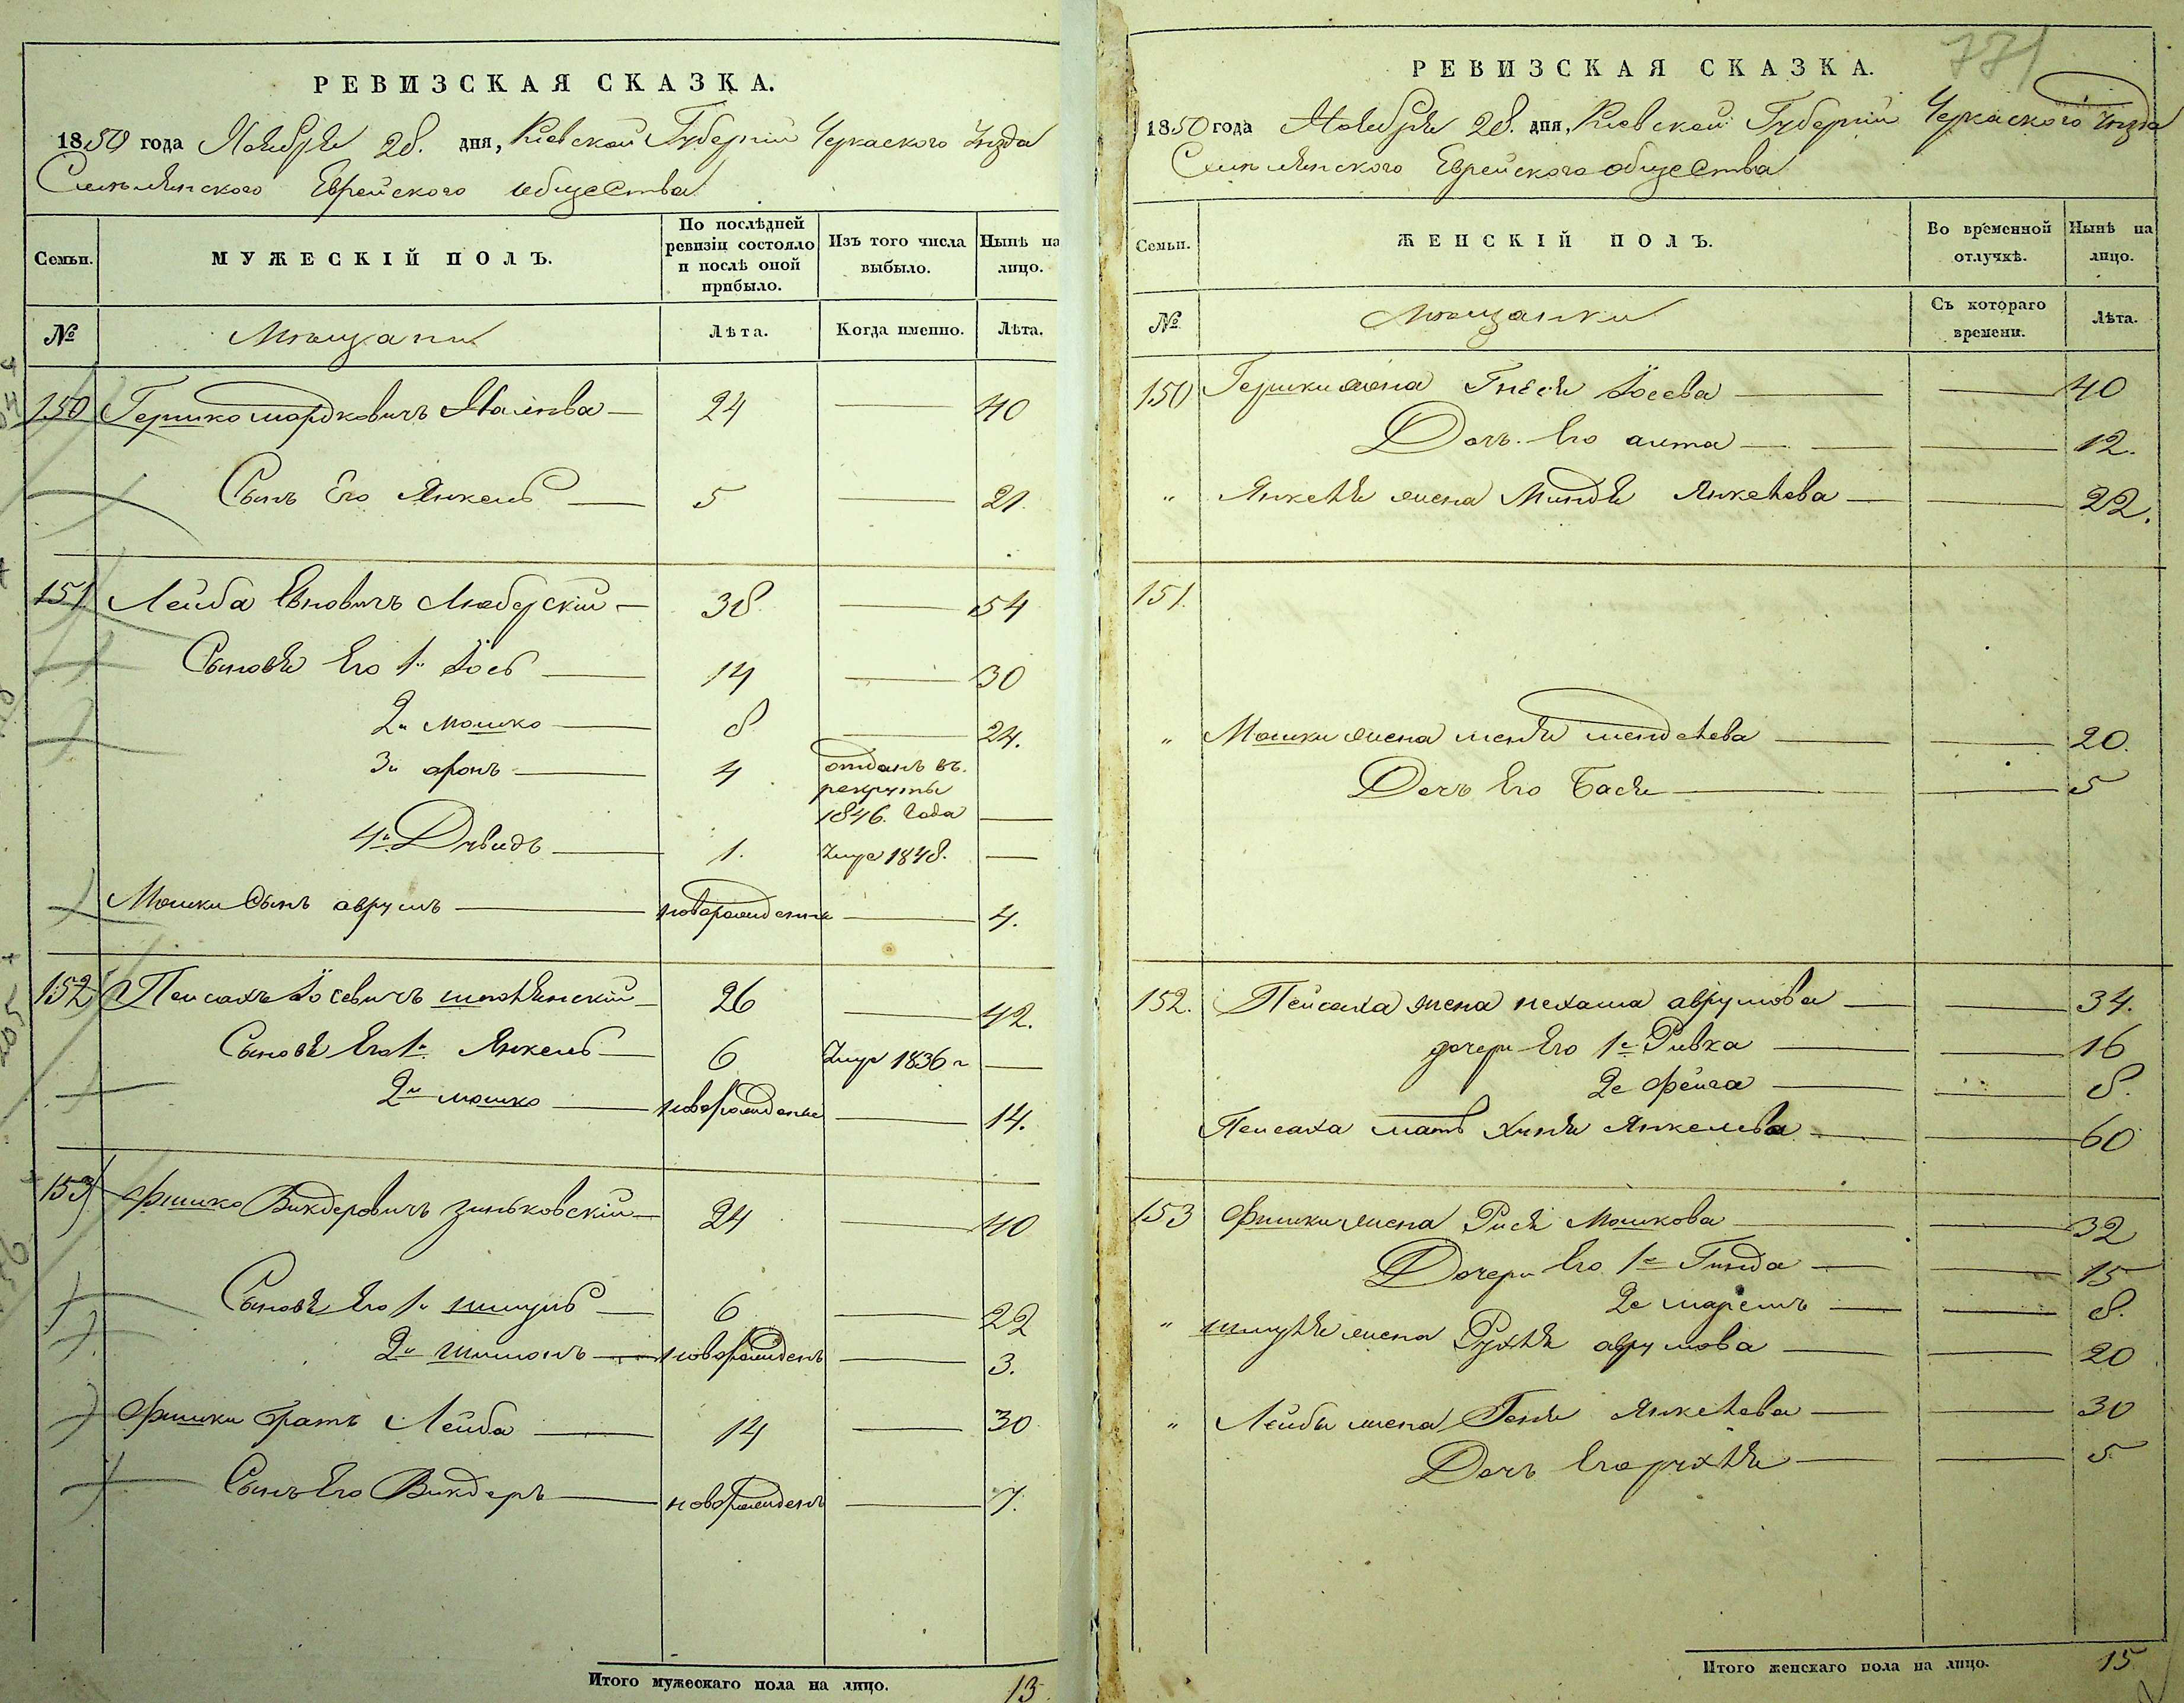 РЕВИЗСКАЯ СКАЗКА.
1850 года Ноября 28. дня, Кіевской Губерніи Черкаского Уѣзда
Смѣлянского Еврейского общества
Семьи.
МУЖЕСКІЙ ПОЛЪ.
По послѣдней ревизіи состояло и послѣ оной прибыло.
Изъ того числа выбыло.
Нынѣ на лицо.
№ Мѣщани Лѣта. Когда именно. Лѣта.
150 Гершко Мордковичъ — 24 — 40
Сынъ Его Янкель — 5 — 21.
151 Лейба Евновичъ Люберскій — 38 — 54
Сыновя Его 1й Іось — 14 — 30
2й Мошко — 8 — 24.
3й Аронъ — 4 отданъ въ
рекруты
1846. Года —
4й Двидъ — 1. Умре 1848. —
Мошки Сынъ Аврумъ — новорожденъ — 4.
152 Пейсахъ Іосевичъ — 26 — 42.
Сыновя Его 1й Янкель — 6 Умре 1836 г —
2й Мошко — новорожденъ — 14.
153 Фишко Викдеровичъ Зиньковскій — 24 — 40
Сыновя Его 1й Шмуль — 6 — 22
2й Шимонъ — новорожденъ — 3.
Фишки братъ Лейба — 14 — 30
Сынъ Его Викдеръ — новорожденъ — 7.
Итого мужескаго пола на лицо. 13.
771
РЕВИЗСКАЯ СКАЗКА.
1850 года Ноября 28. дня, Кіевской Губерніи Черкаского Уѣзда
Смѣлянского Еврейского общества
Семьи.
ЖЕНСКІЙ ПОЛЪ.
Во временной отлучкѣ.
Нынѣ на лицо.
№ Мѣщанки Съ котораго времени. Лѣта.
150 Гершки жена Гнеся Іосева — — 40
Дочь Его — — 12.
" Янкеля жена Миндя Янкелева — — 22.
151.
" Мошки жена Шендя Менделева — — 20.
Дочь Его Бася — — 5
152. Пейсаха жена Нехама Аврумова — — 34.
дочери Его 1е Ривка — — 16
2е Фейга — — 8.
Пейсаха мать Хиня Янкелева — — 60
153 Фишки жена Рися Мошкова — — 32
Дочери Его 1е Гинда — — 15
2е Маремъ — — 8.
" Шмуля жена Рухля Аврумова — — 20
" Лейбы жена Геня Янкелева — — 30
Дочь Его Рухля — — 5
Итого женскаго пола на лицо. 15